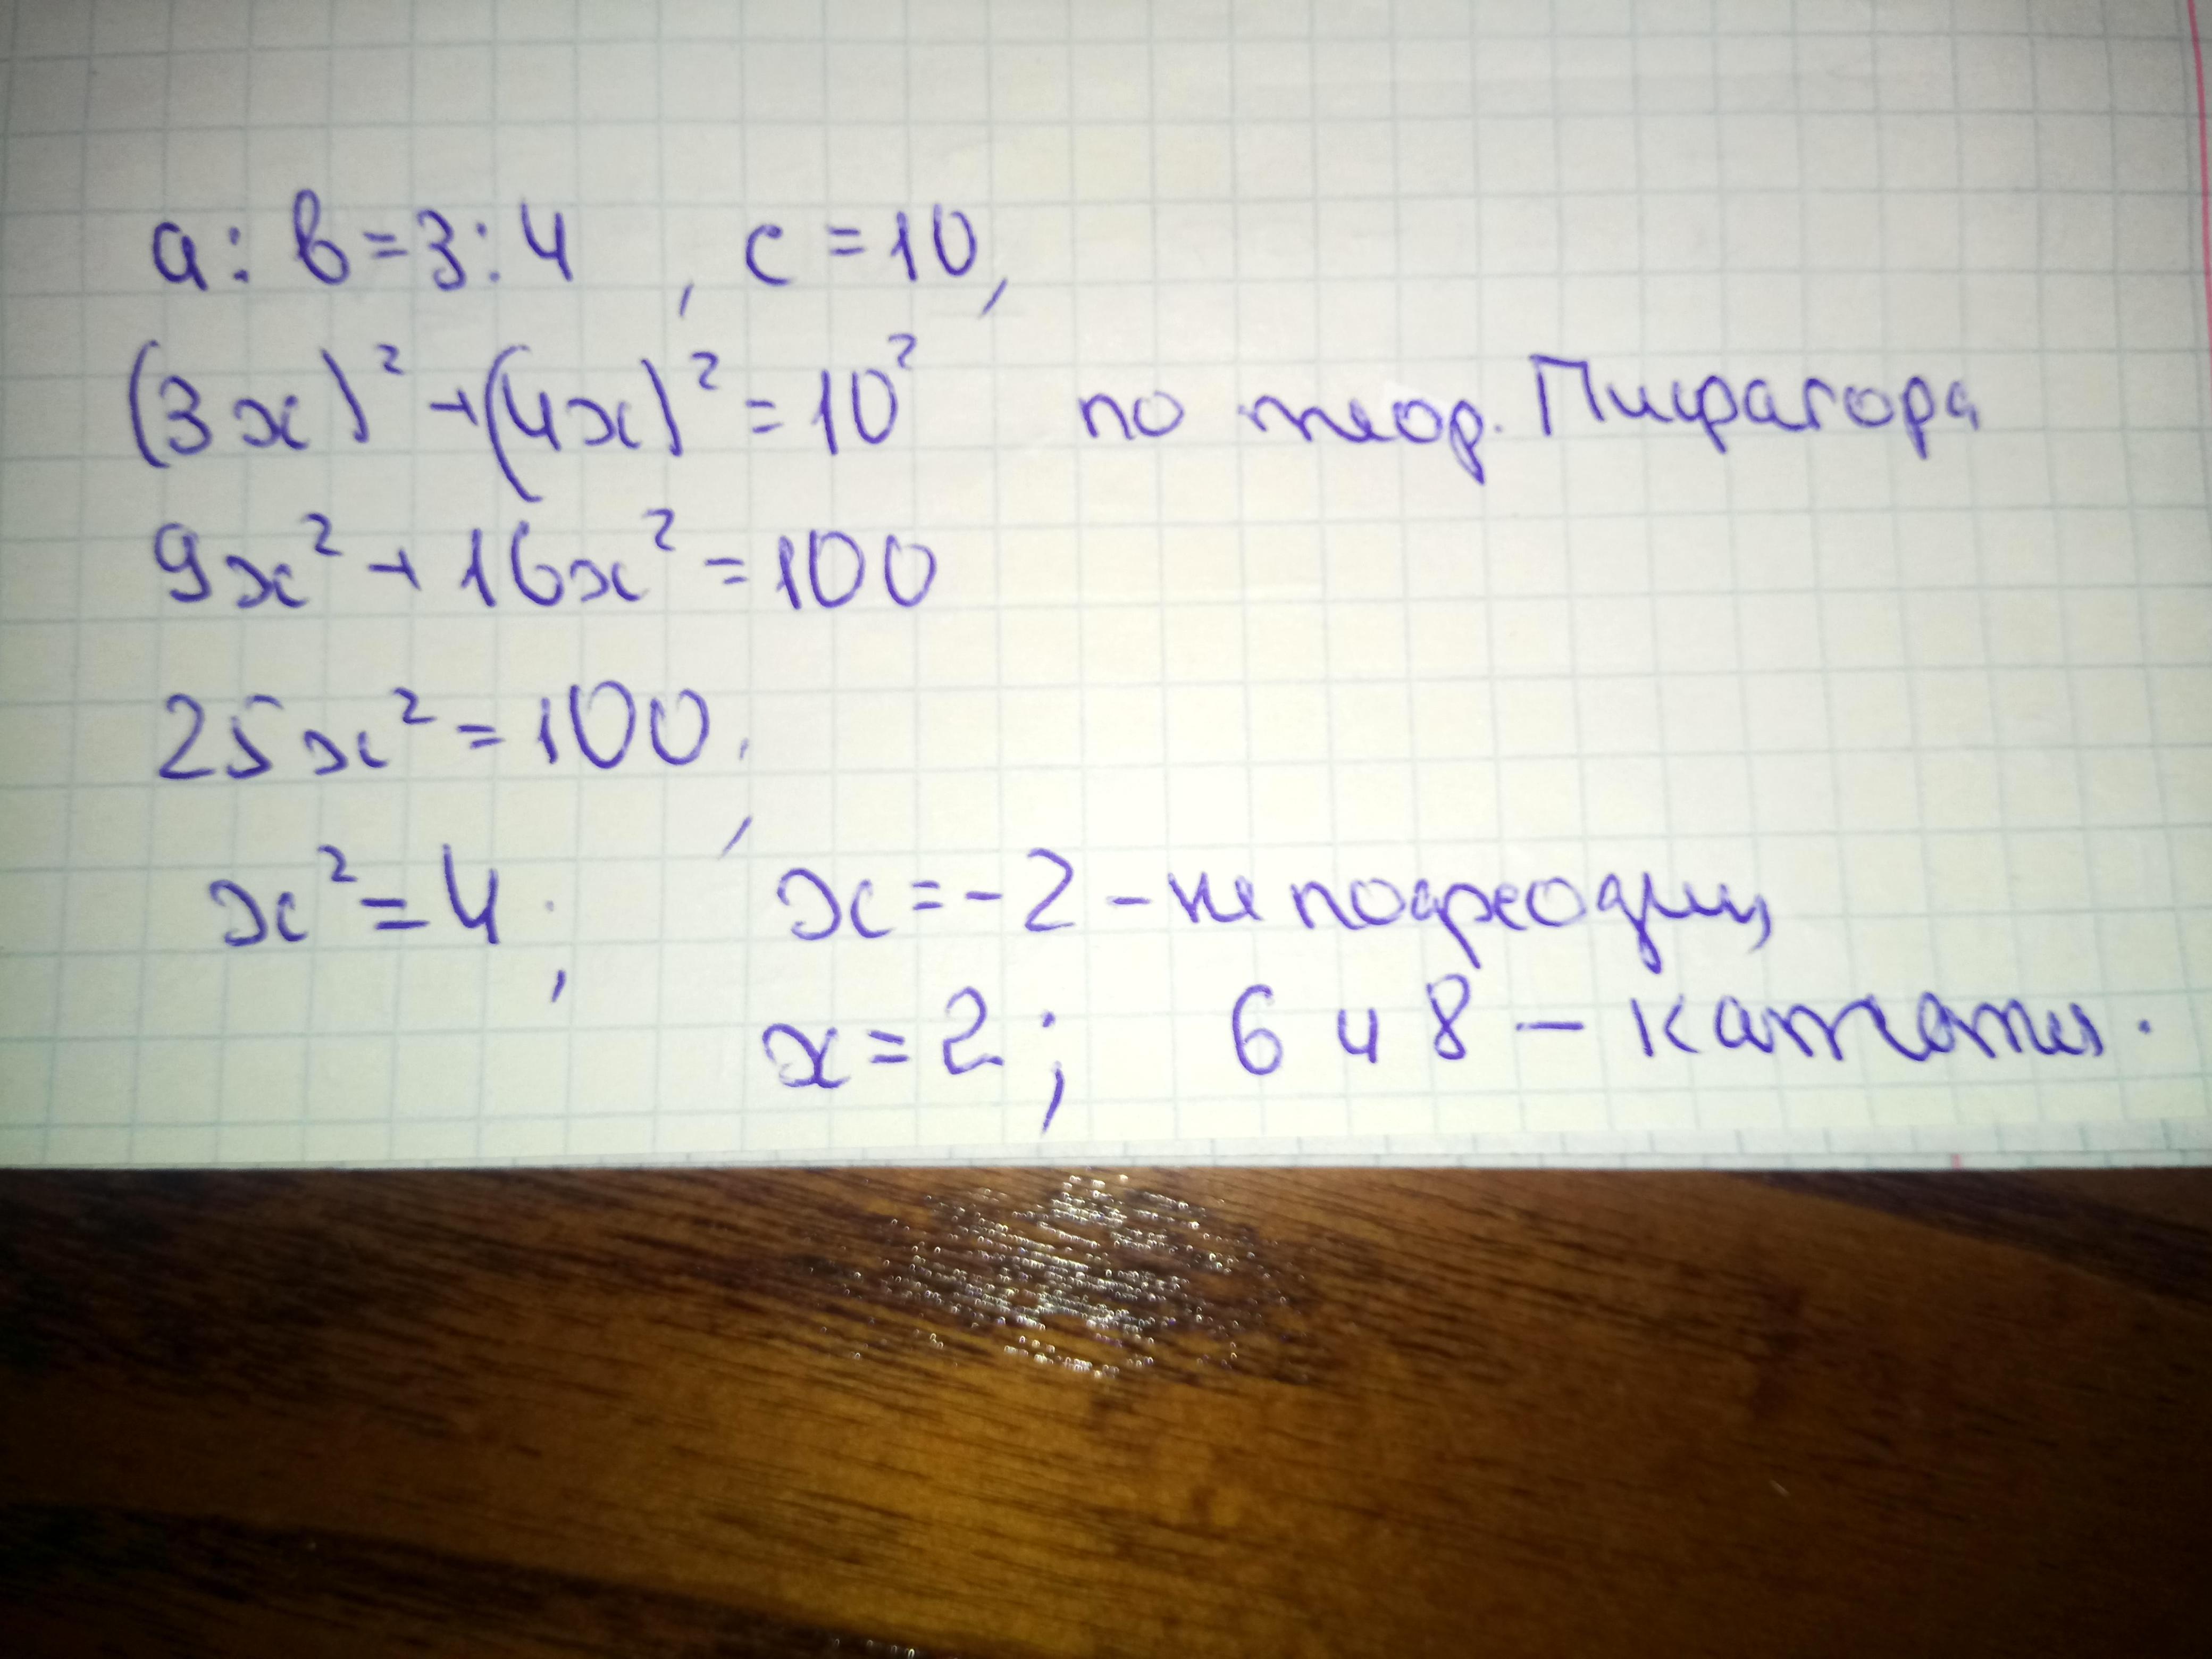 a : b = 3 : 4 , c = 10,
(3x)² + (4x)² = 10² по теор. Пифагора
9x² + 16x² = 100
25x² = 100,
x² = 4; x = -2 - не подходит,
x = 2; 6 и 8 – катеты.